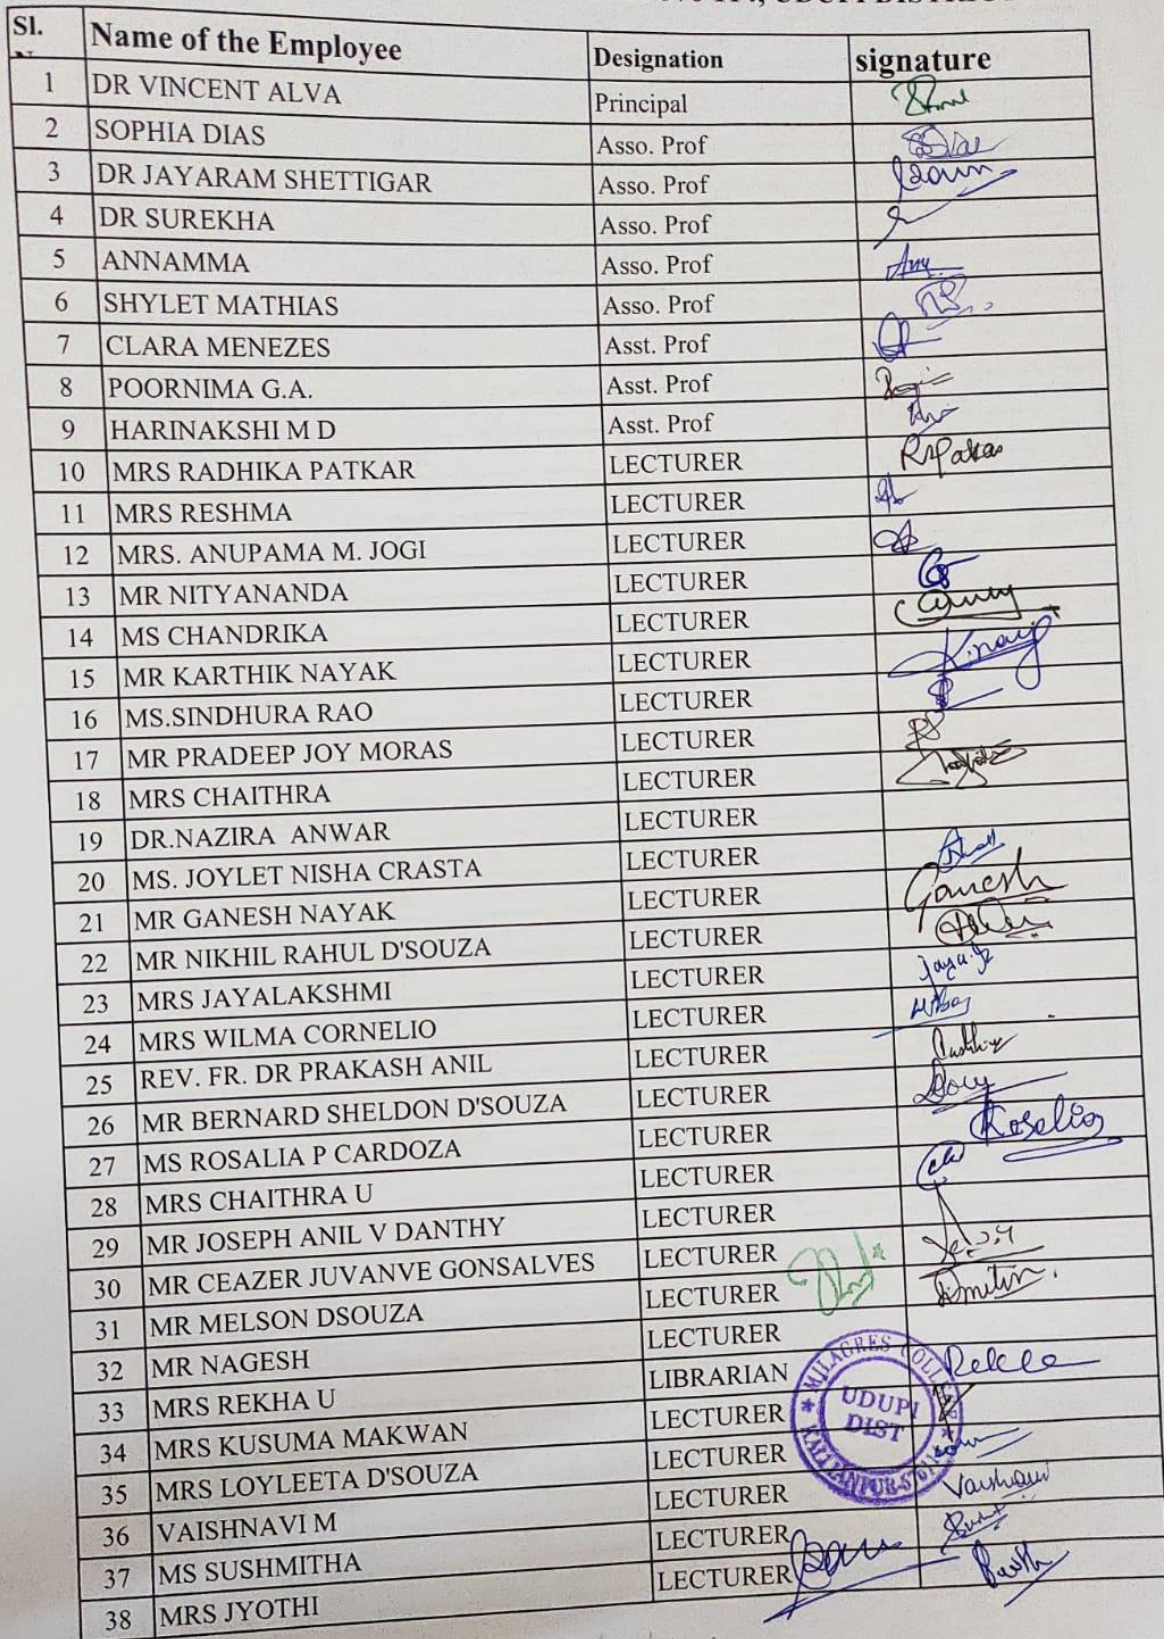 Sl. Name of the Employee Designation signature
1 DR VINCENT ALVA Principal
2 SOPHIA DIAS Asso. Prof
3 DR JAYARAM SHETTIGAR Asso. Prof
4 DR SUREKHA Asso. Prof
5 ANNAMMA Asso. Prof
6 SHYLET MATHIAS Asso. Prof
7 CLARA MENEZES Asst. Prof
8 POORNIMA G.A. Asst. Prof
9 HARINAKSHI M D Asst. Prof
10 MRS RADHIKA PATKAR LECTURER
11 MRS RESHMA LECTURER
12 MRS. ANUPAMA M. JOGI LECTURER
13 MR NITYANANDA LECTURER
14 MS CHANDRIKA LECTURER
15 MR KARTHIK NAYAK LECTURER
16 MS.SINDHURA RAO LECTURER
17 MR PRADEEP JOY MORAS LECTURER
18 MRS CHAITHRA LECTURER
19 DR.NAZIRA ANWAR LECTURER
20 MS. JOYLET NISHA CRASTA LECTURER
21 MR GANESH NAYAK LECTURER Ganesh
22 MR NIKHIL RAHUL D'SOUZA LECTURER
23 MRS JAYALAKSHMI LECTURER
24 MRS WILMA CORNELIO LECTURER
25 REV. FR. DR PRAKASH ANIL LECTURER
26 MR BERNARD SHELDON D'SOUZA LECTURER
27 MS ROSALIA P CARDOZA LECTURER
28 MRS CHAITHRA U LECTURER
29 MR JOSEPH ANIL V DANTHY LECTURER
30 MR CEAZER JUVANVE GONSALVES LECTURER
31 MR MELSON DSOUZA LECTURER
32 MR NAGESH LECTURER
33 MRS REKHA U LIBRARIAN
34 MRS KUSUMA MAKWAN LECTURER
35 MRS LOYLEETA D'SOUZA LECTURER
36 VAISHNAVI M LECTURER
37 MS SUSHMITHA LECTURER
38 MRS JYOTHI LECTURER
MILAGRES
UDUPI
DIST